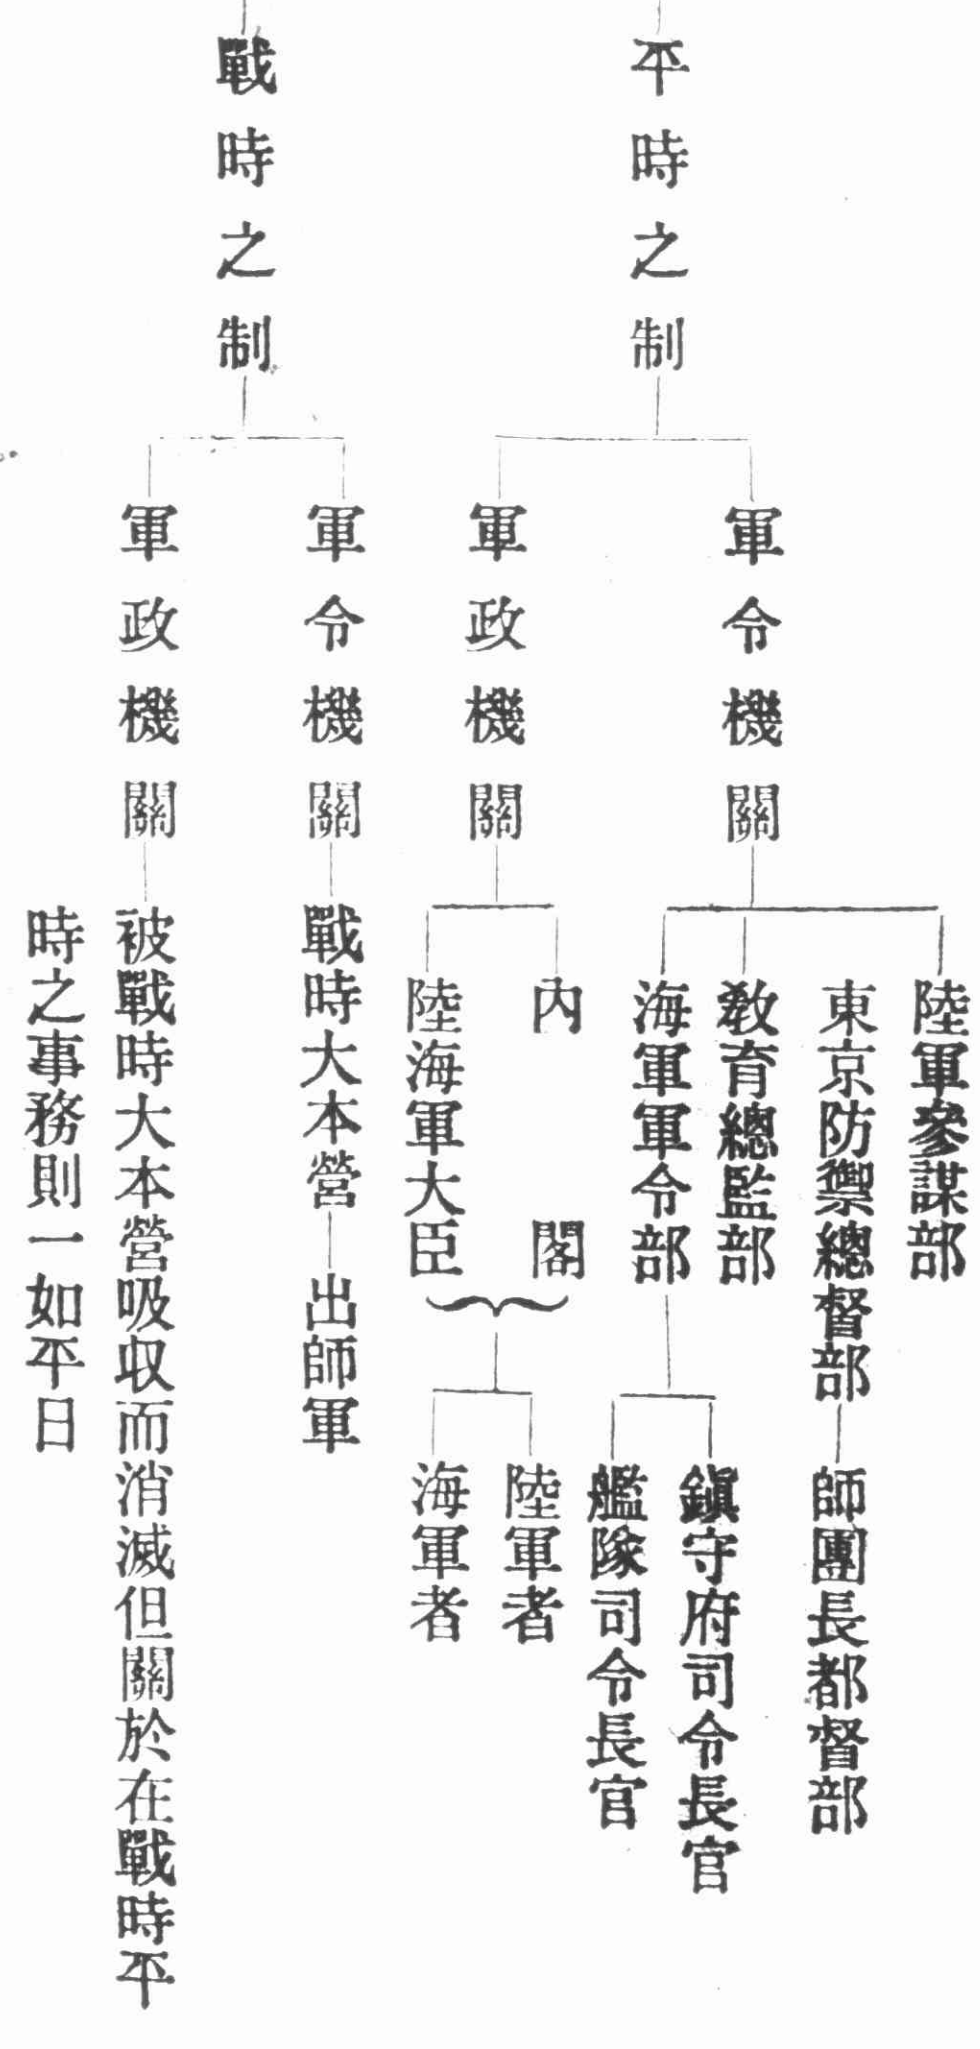 平時之制
軍令機關
陸軍參謀部
東京防禦總督部
師團長都督部
教育總監部
海軍軍令部
鎭守府司令長官
艦隊司令長官
軍政機關
內閣
陸海軍大臣
陸軍者
海軍者
戰時之制
軍令機關
戰時大本營
出師軍
軍政機關
被戰時大本營吸収而消滅但關於在戰時平
時之事務則一如平日